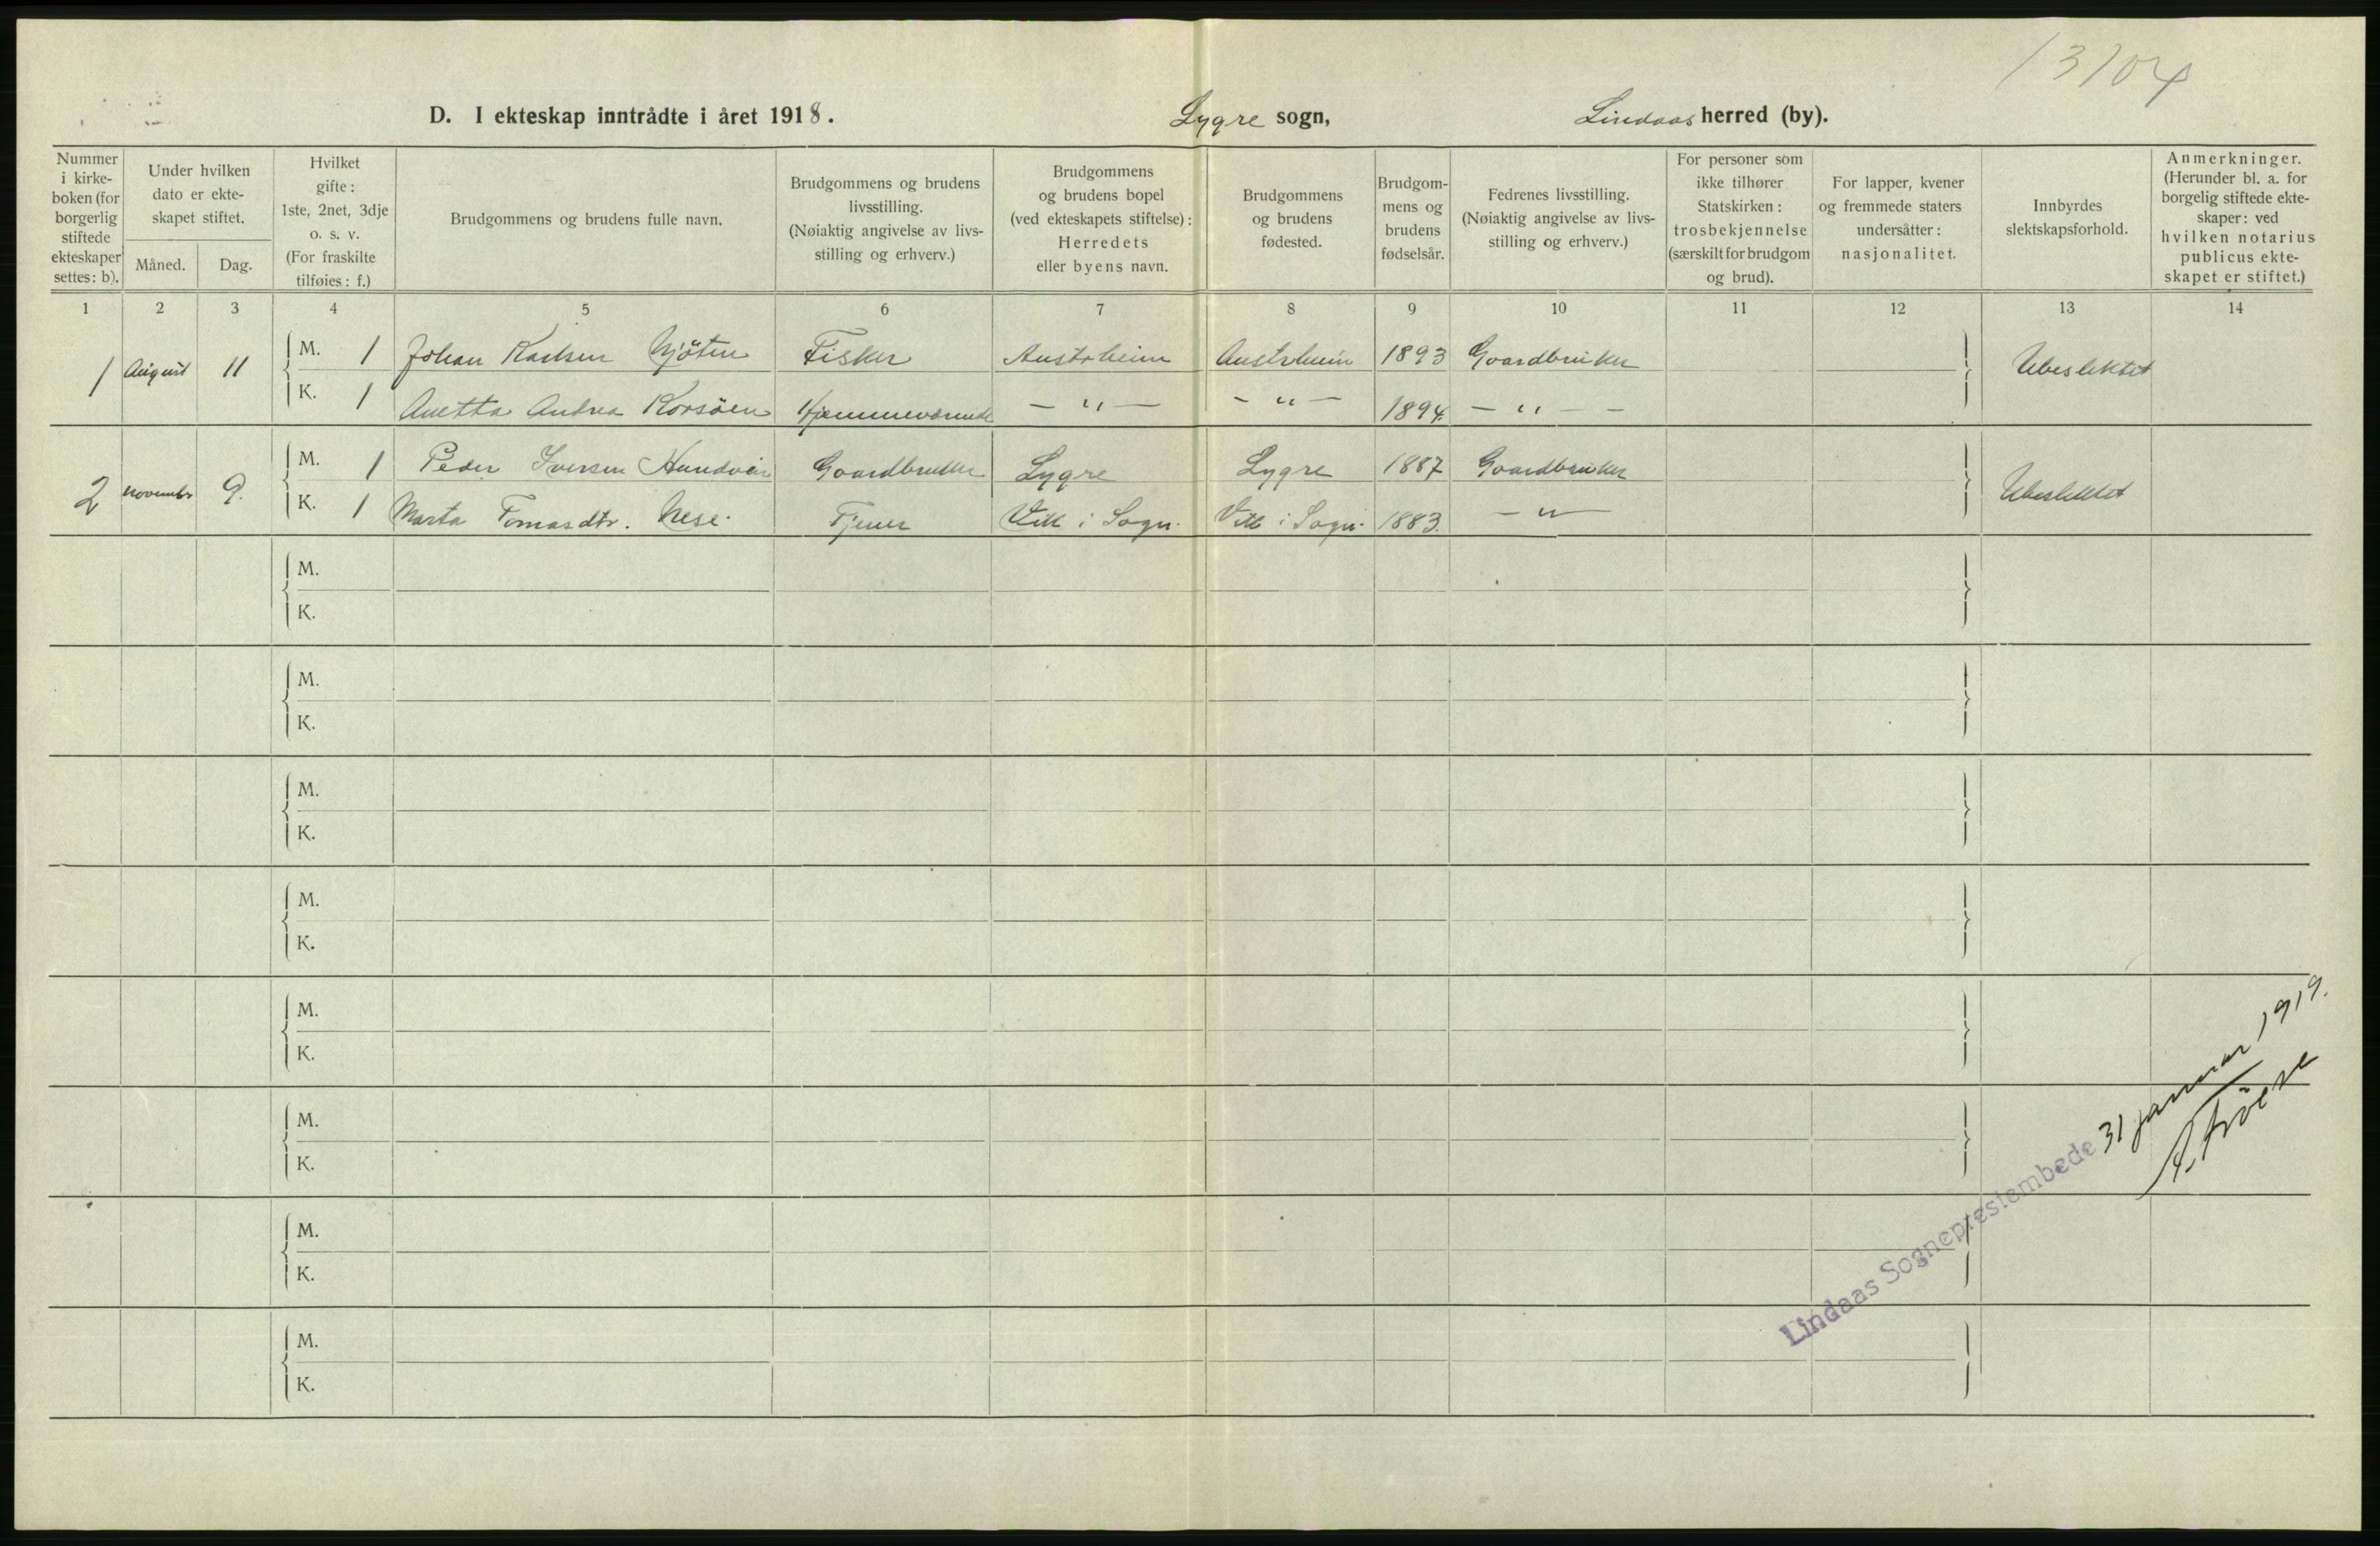 13104
D. I ekteskap inntrådte i året 1918. Lygre sogn, Lindaas herred (by).
Nummer i kirkeboken (for borgerlig stiftede ekteskaper settes: b).
Under hvilken dato er ekteskapet stiftet.
Måned. Dag.
Hvilket gifte: 1ste, 2net, 3dje o. s. v. (For fraskilte tilføies: f.)
Brudgommens og brudens fulle navn.
Brudgommens og brudens livsstilling. (Nøiaktig angivelse av livsstilling og erhverv.)
Brudgommens og brudens bopel (ved ekteskapets stiftelse): Herredets eller byens navn.
Brudgommens og brudens fødested.
Brudgommens og brudens fødselsår.
Fedrenes livsstilling. (Nøiaktig angivelse av livsstilling og erhverv.)
For personer som ikke tilhører Statskirken: trosbekjennelse (særskilt for brudgom og brud).
For lapper, kvener og fremmede staters undersåtter: nasjonalitet.
Innbyrdes slektskapsforhold.
Anmerkninger. (Herunder bl. a. for borgelig stiftede ekteskaper: ved hvilken notarius publicus ekteskapet er stiftet.)
1 2 3 4 5 6 7 8 9 10 11 12 13 14
1 August 11 M. 1 Johan Karlsen Njöten Fisker Austrheim Austrheim 1893 Gaardbruker Ubeslektet
K. 1 Anetta Andrea Korsöen Hjemmeværende — " — — " — 1894. — " — —
2 november 9. M. 1 Peder Iversen Hundvin Gaardbruker Lygre Lygre 1887 Gaardbruker Ubeslektet
K. 1 Marta Tomasdtr. Nese. Tjener Vik i Sogn. Vik i Sogn. 1883. — " —
M.
K.
M.
K.
M.
K.
M.
K.
M.
K.
M.
K.
M.
K.
M.
K.
Lindaas Sogneprestembede 31 januar 1919.